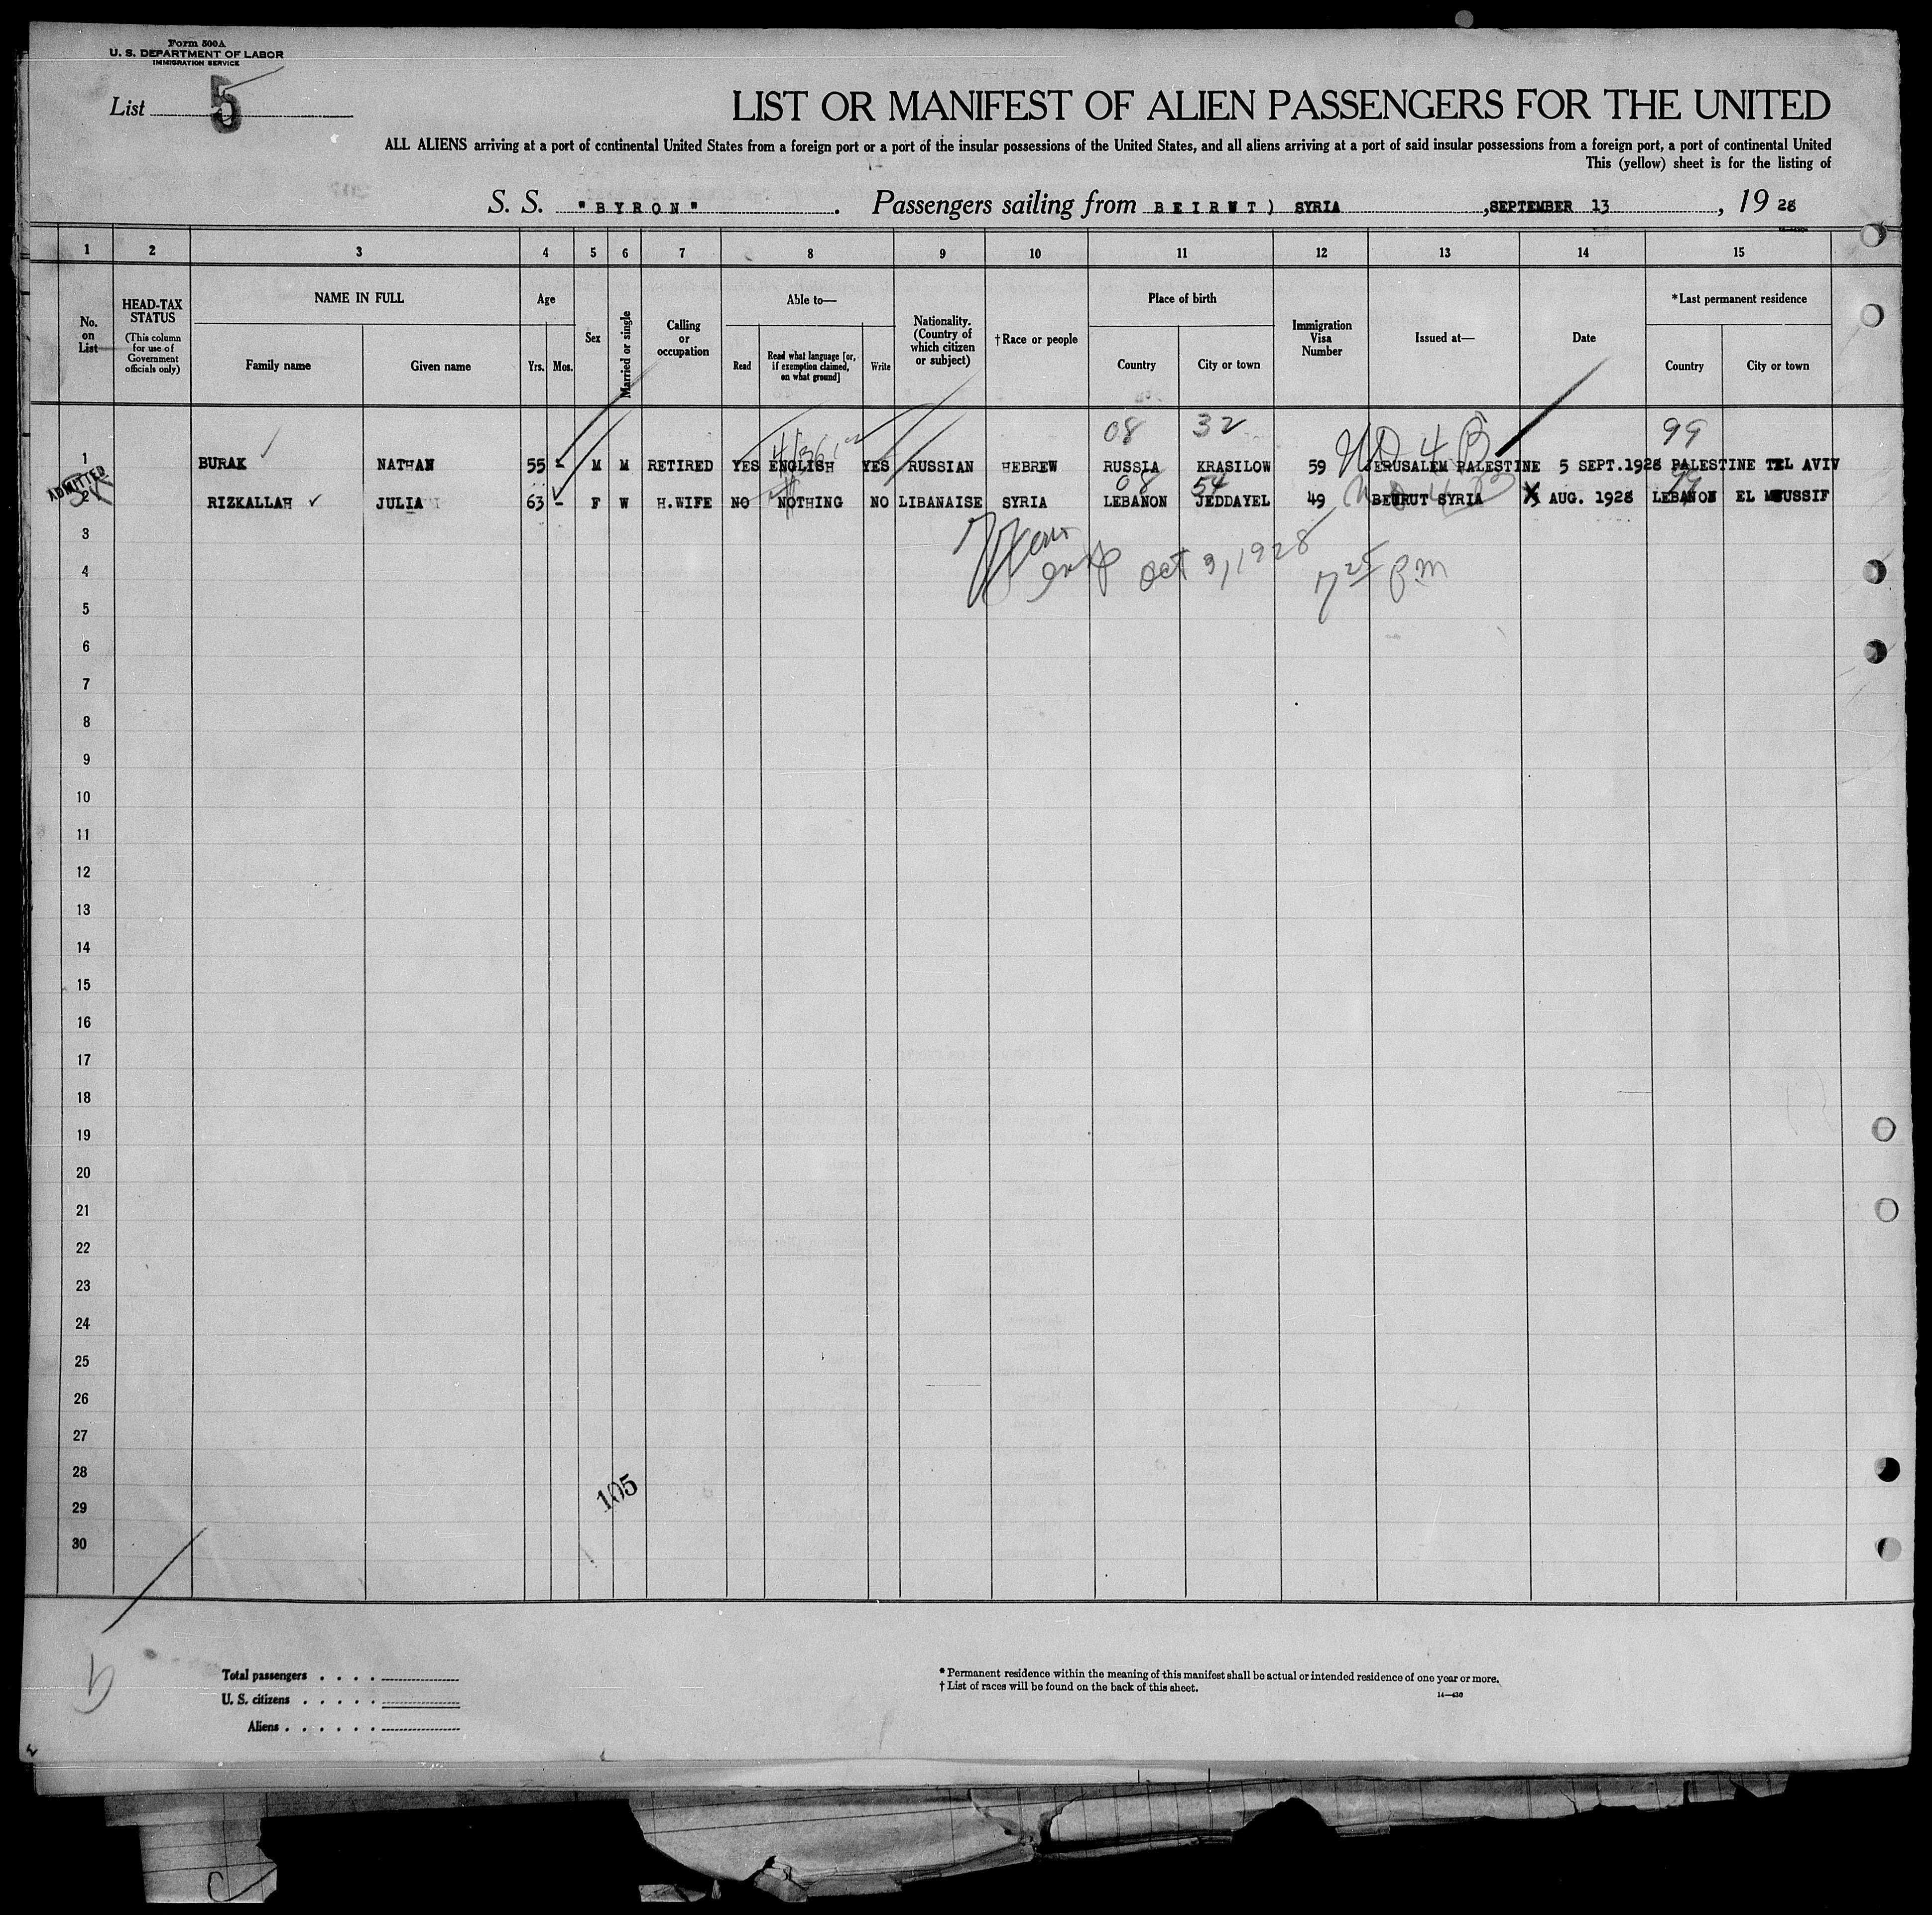 Form 500A
U. S. DEPARTMENT OF LABOR
IMMIGRATION SERVICE
List 5
LIST OR MANIFEST OF ALIEN PASSENGERS FOR THE UNITED
ALL ALIENS arriving at a port of continental United States from a foreign port or a port of the insular possessions of the United States, and all aliens arriving at a port of said insular possessions from a foreign port, a port of continental United
This (yellow) sheet is for the listing of
S. S. "BYRON". Passengers sailing from BEIRUT) SYRIA, SEPTEMBER 13, 1928
1 2 3 4 5 6 7 8 9 10 11 12 13 14 15
No. on List
HEAD-TAX STATUS
(This column for use of Government officials only)
NAME IN FULL
Family name
Given name
Age
Yrs. Mos.
Sex
Married or single
Calling or occupation
Able to—
Read
Read what language [or, if exemption claimed, on what ground]
Write
Nationality. (Country of which citizen or subject)
†Race or people
Place of birth
Country
City or town
Immigration Visa Number
Issued at—
Date
*Last permanent residence
Country
City or town
08 32 99
1 BURAK NATHAN 55 - M M RETIRED YES ENGLISH YES RUSSIAN HEBREW RUSSIA KRASILOW 59 JERUSALEM PALESTINE 5 SEPT.1928 PALESTINE TEL AVIV
ADMITTED
08 54 99
2 RIZKALLAH JULIA 63 - F W H.WIFE NO NOTHING NO LIBANAISE SYRIA LEBANON JEDDAYEL 49 BEURUT SYRIA AUG. 1928 LEBANON EL MOUSSIF
3
Oct 9, 1928
4
7 25 P.M
5
6
7
8
9
10
11
12
13
14
15
16
17
18
19
20
21
22
23
24
25
26
27
28
105
29
30
Total passengers . . . .
U. S. citizens . . . . .
Aliens . . . . . .
* Permanent residence within the meaning of this manifest shall be actual or intended residence of one year or more.
† List of races will be found on the back of this sheet.
14—430